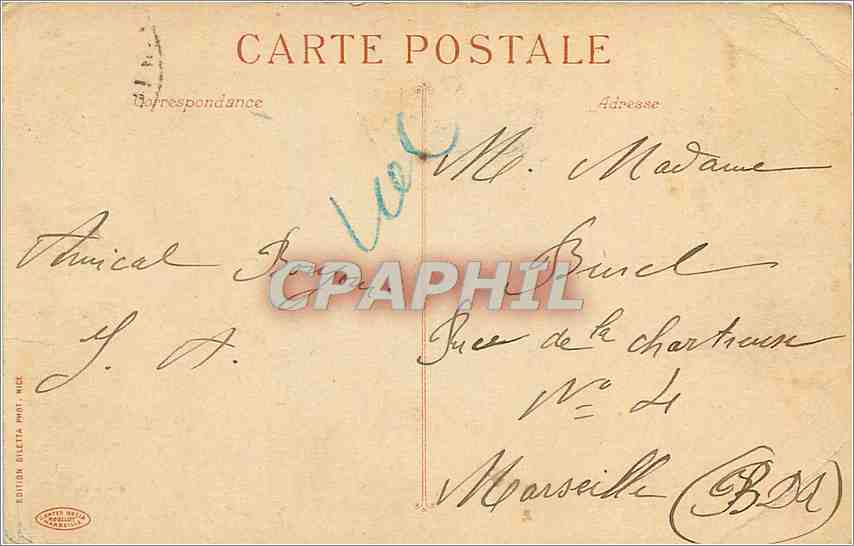 CARTE POSTALE
Correspondance
Adresse
M. Madame
Amical Bonjour
CPAPHIL
J. A.
de la chartreuse
No 4
Marseille (BDR)
EDITION GILETTA PHOT. NICE
MARSEILLE